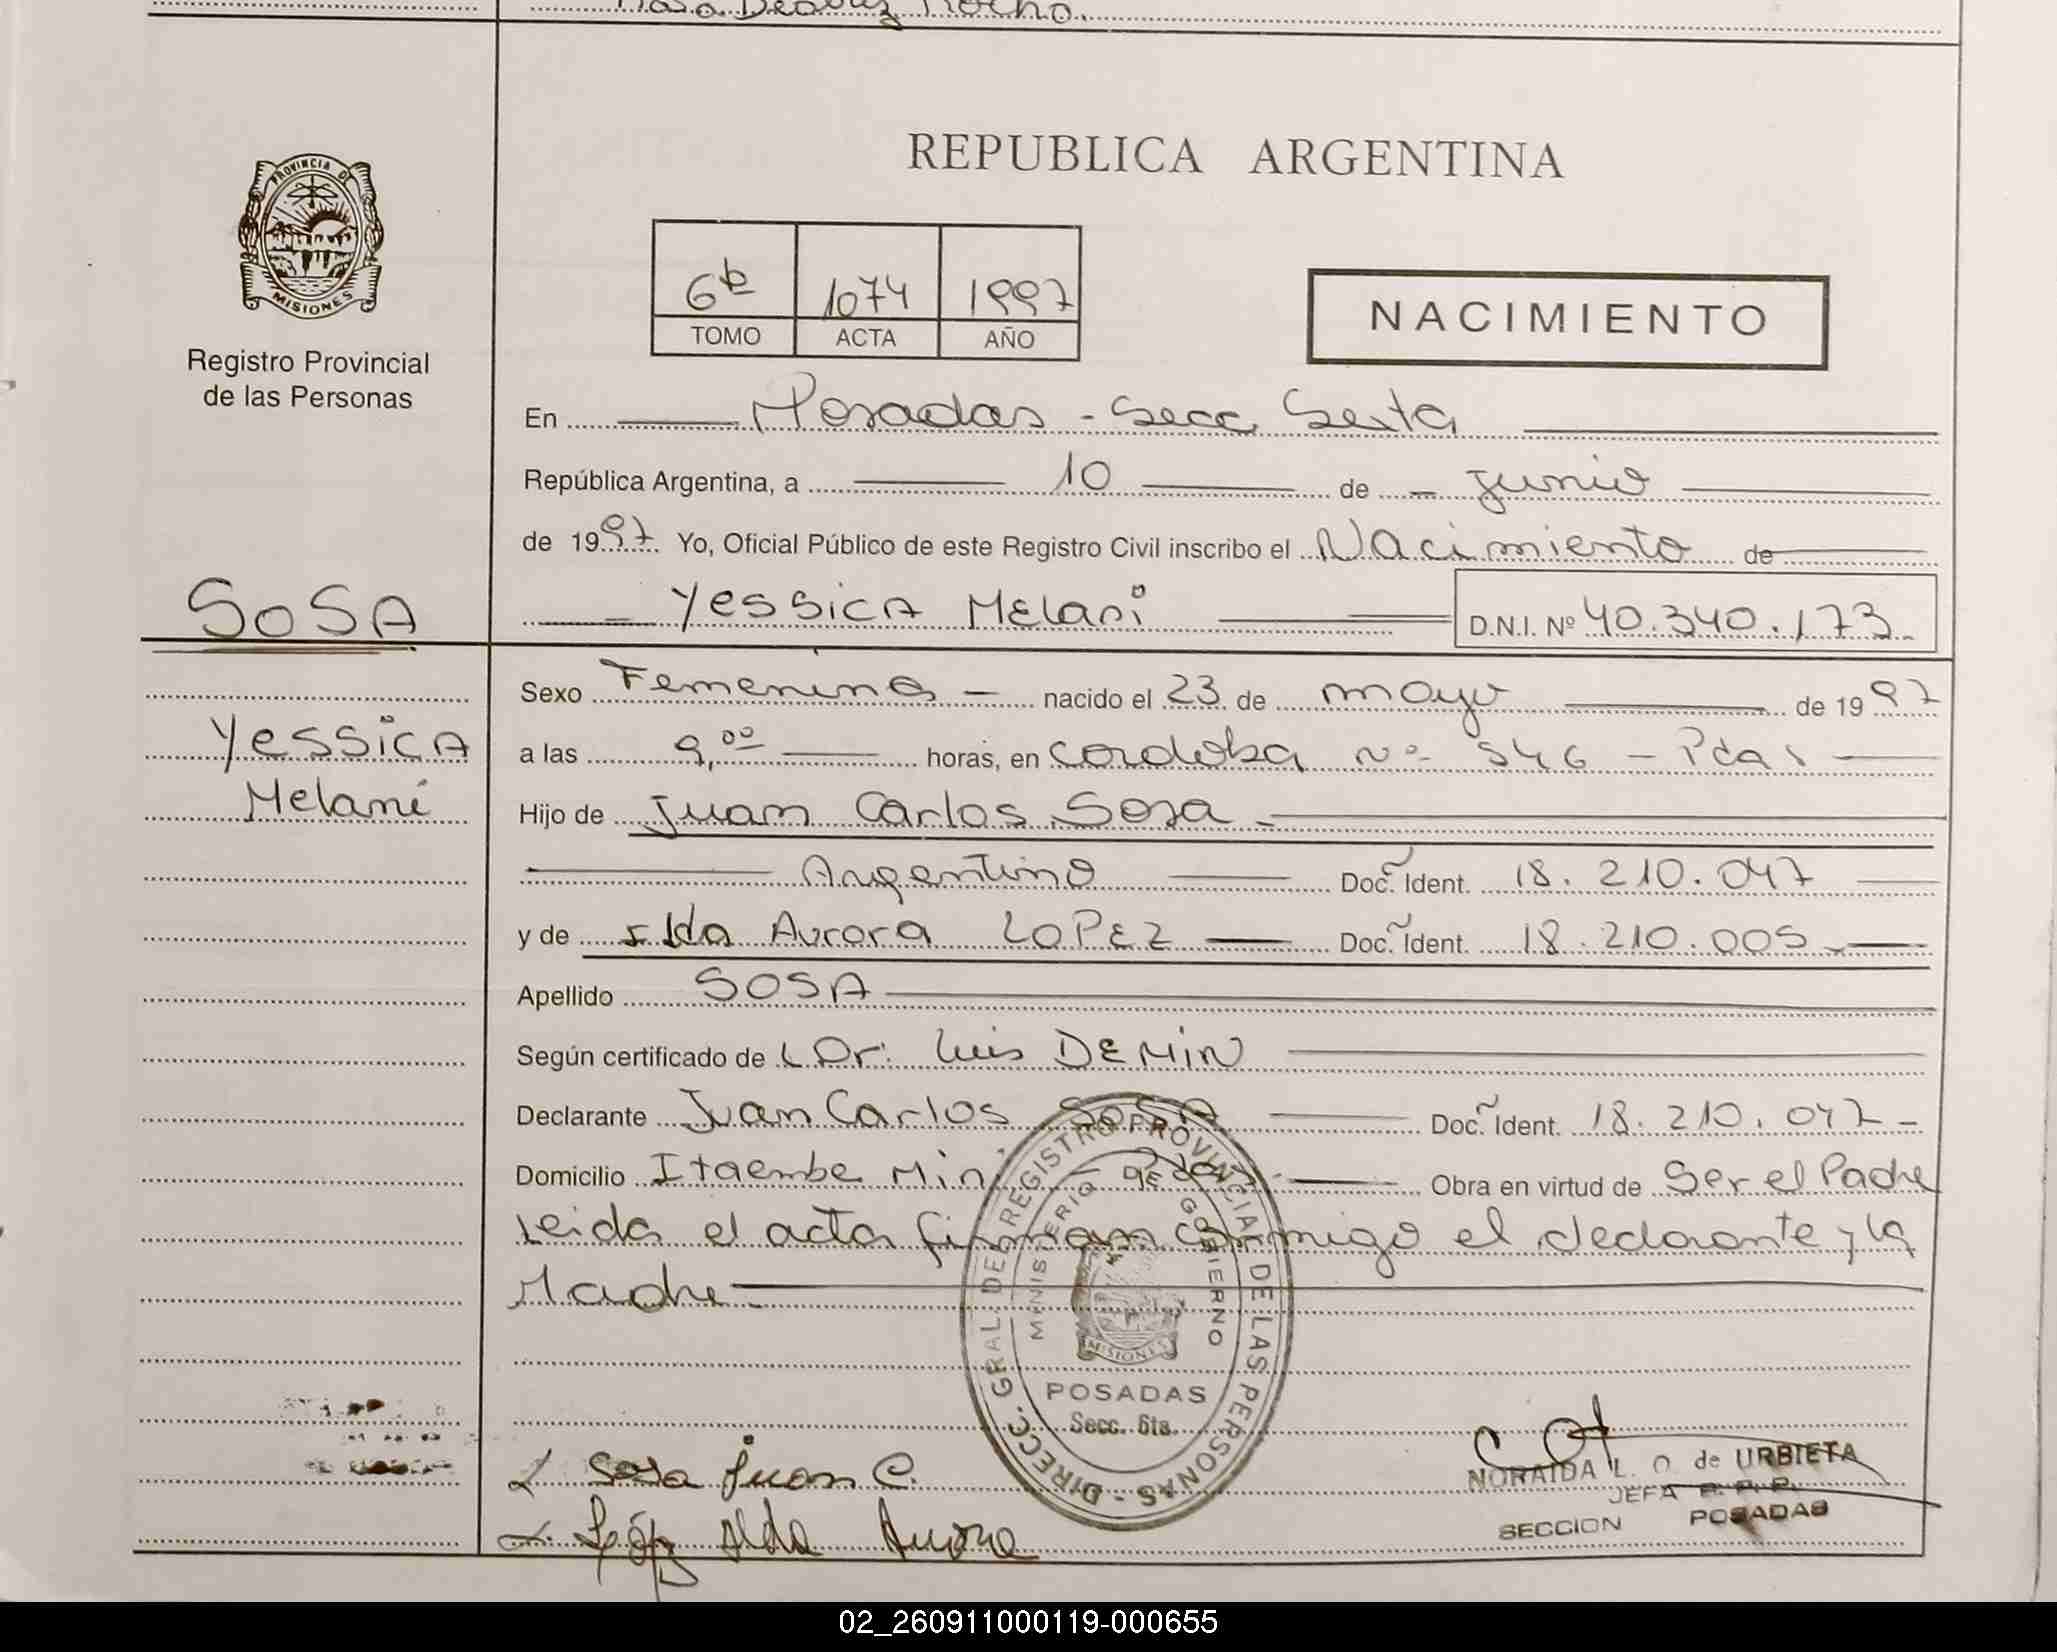 PROVINCIA DE
MISIONES
Registro Provincial
de las Personas
SOSA
Yessica
Melani
REPUBLICA ARGENTINA
6b 1074 1997
TOMO ACTA AÑO
NACIMIENTO
En Posadas - Secc. Sexta
República Argentina, a 10 de Junio
de 1997. Yo, Oficial Público de este Registro Civil inscribo el Nacimiento de
Yessica Melani D.N.I. Nº 40.340.173
Sexo Femenino nacido el 23 de mayo de 1997
a las 9,00 horas, en Cordoba Nº 546 - Pdas
Hijo de Juan Carlos Sosa
Argentino Doc. Ident. 18.210.047
y de Ilda Aurora LOPEZ Doc. Ident. 18.210.005
Apellido SOSA
Según certificado de L Dr. Luis DEMIN
Declarante Juan Carlos SOSA Doc. Ident. 18.210.047
Domicilio Itaembe Mini - Pdas Obra en virtud de Ser el Padre
Leida el acta firman conmigo el declarante y la
Madre
DIRECC. GRAL. DEL REGISTRO PROVINCIAL DE LAS PERSONAS
MINISTERIO DE GOBIERNO
MISIONES
POSADAS
Secc. 6ta.
Sosa Juan C.
López Ilda Aurora
NORAIDA L. O. de URBIETA
JEFA R. P. P.
SECCION POSADAS
02_260911000119-000655